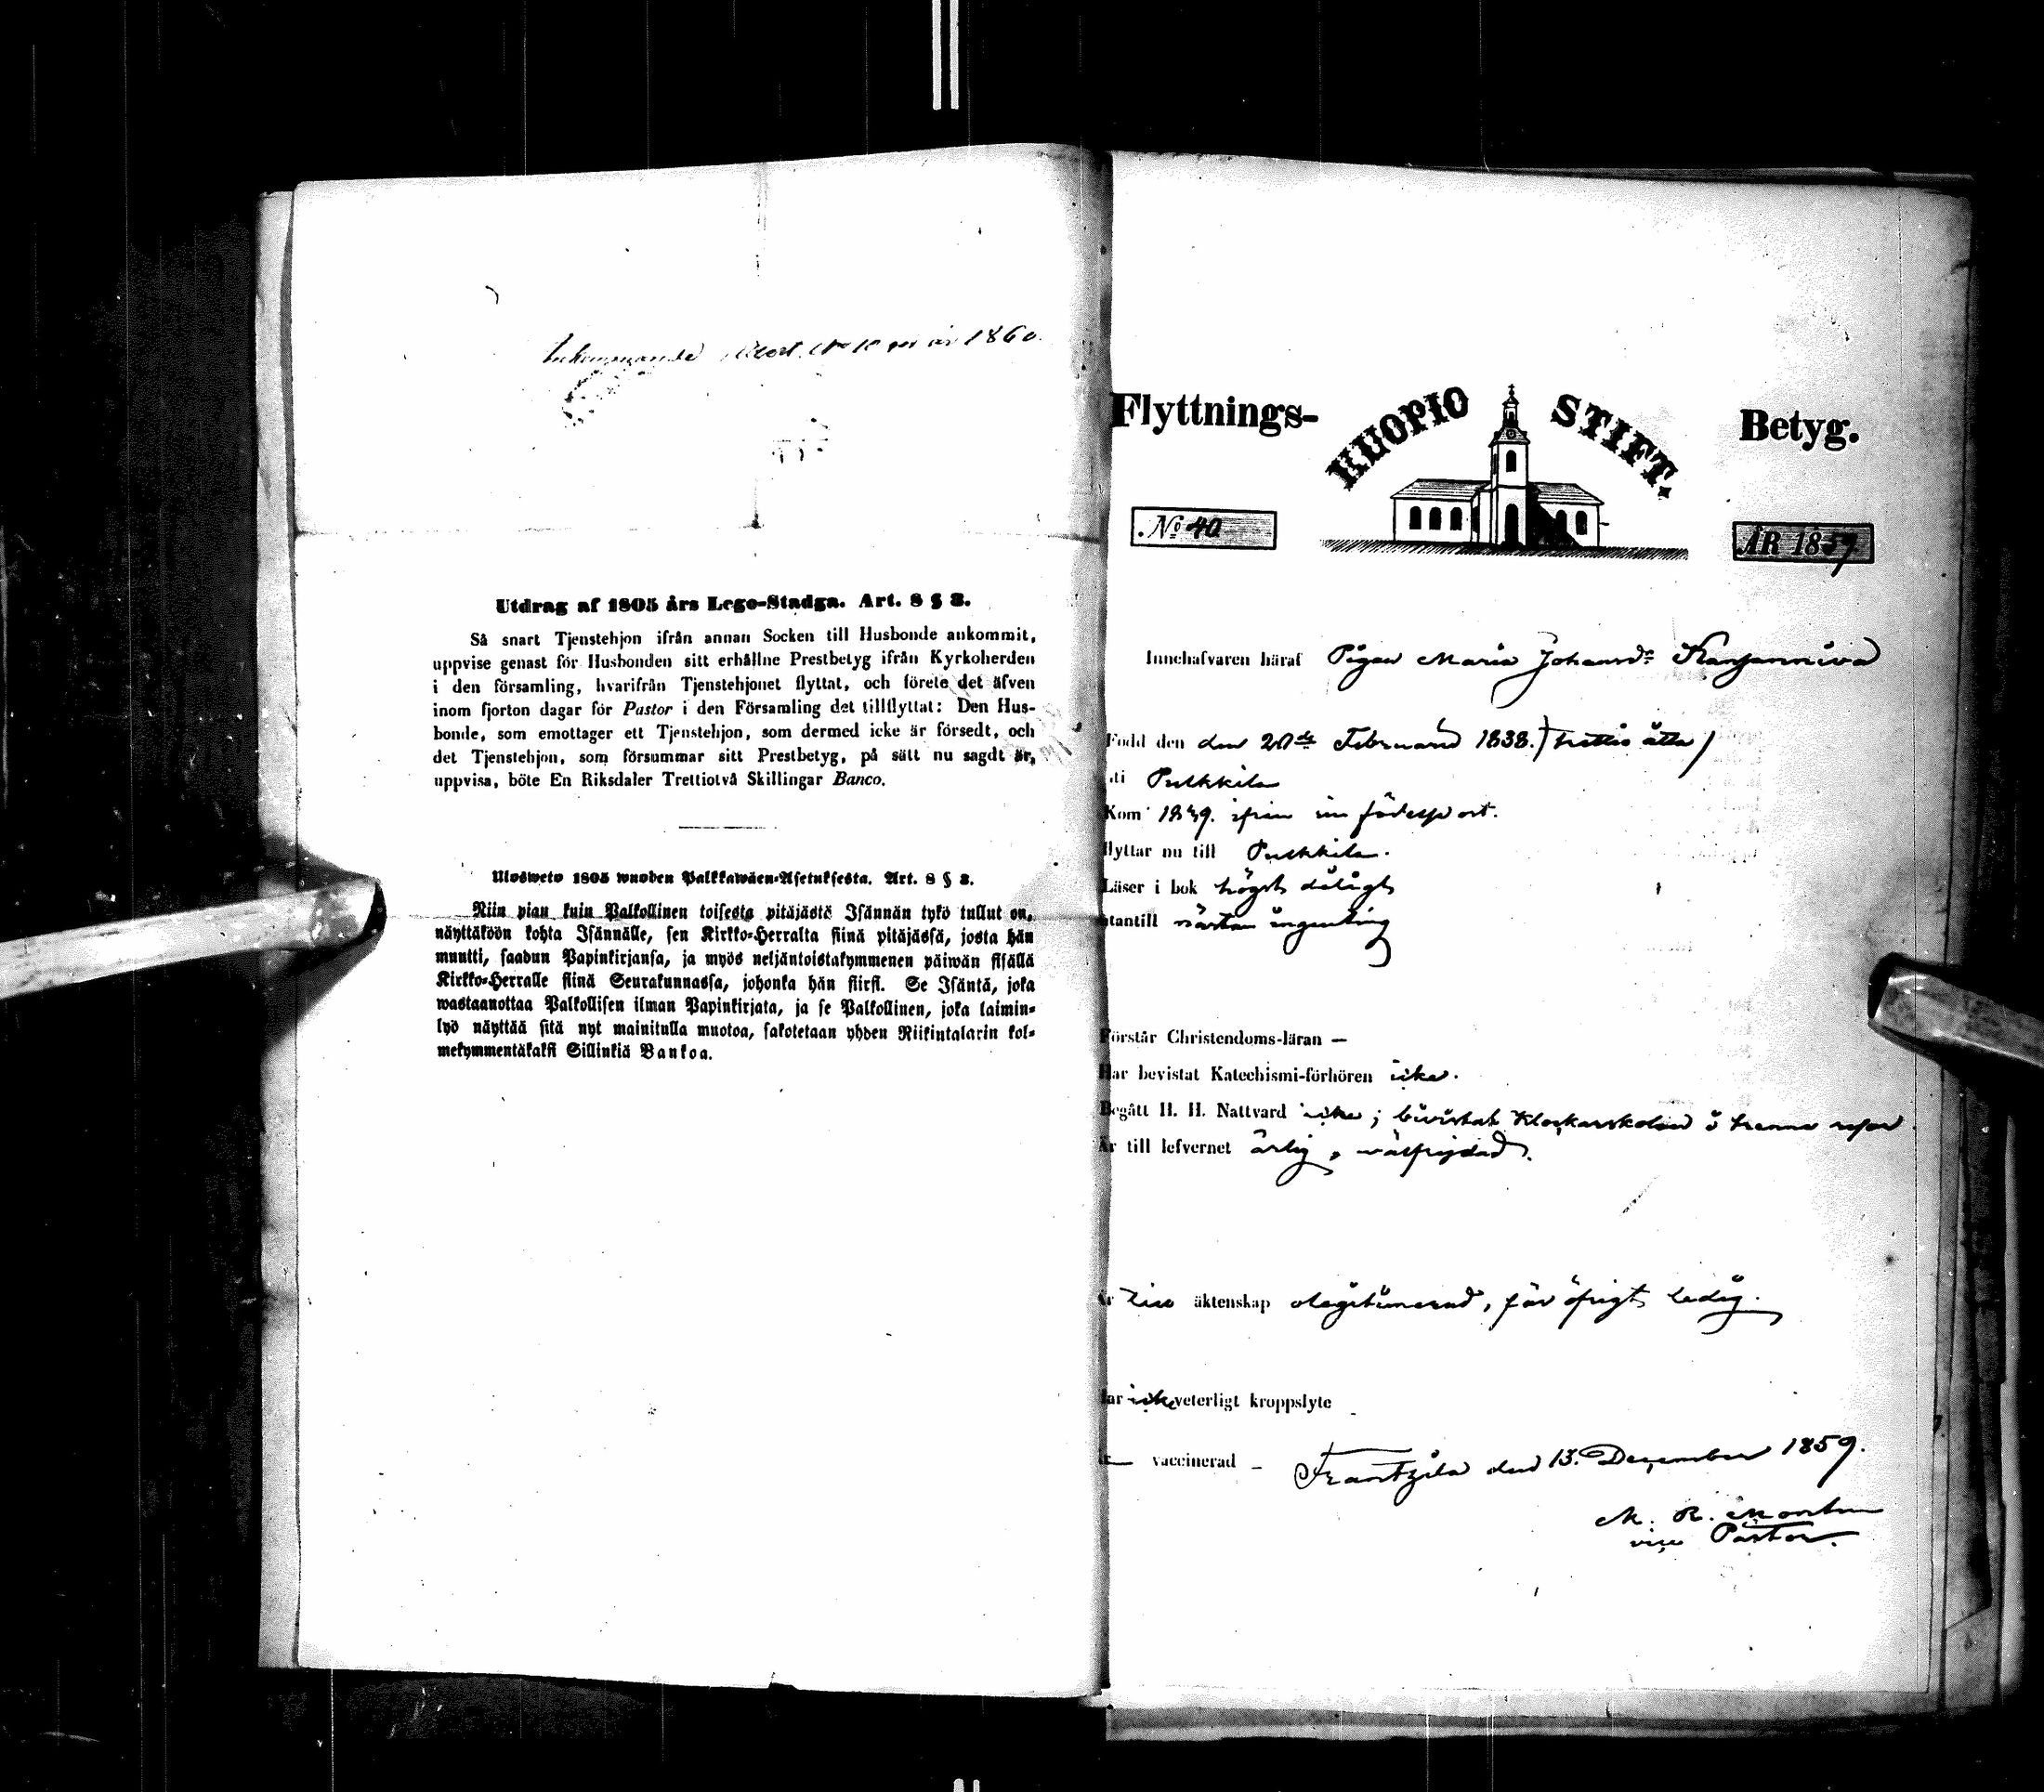 Inkommande Attest No 10 för år 1860.
Utdrag af 1805 års Lego-Stadga. Art. 8 § 3.
Så snart Tjenstehjon ifrån annan Socken till Husbonde ankommit,
uppvise genast för Husbonden sitt erhållne Prestbetyg ifrån Kyrkoherden
i den församling, hvarifrån Tjenstehjonet flyttat, och förete det äfven
inom fjorton dagar för Pastor i den Församling det tillflyttat: Den Hus-
bonde, som emottager ett Tjenstehjon, som dermed icke är försedt, och
det Tjenstehjon, som försummar sitt Prestbetyg, på sätt nu sagdt är,
uppvisa, böte En Riksdaler Trettiotvå Skillingar Banco.
Ulosweto 1805 wuoden Palkkawäen-Asetuksesta. Art. 8 § 3.
Niin pian kuin Palkollinen toisesta pitäjästä Isännän tykö tullut on,
näyttäköön kohta Isännälle, sen Kirkko-Herralta siinä pitäjässä, josta hän
muutti, saadun Papinkirjansa, ja myös neljäntoistakymmenen päiwän sisällä
Kirkko-Herralle siinä Seurakunnassa, johonka hän siirsi. Se Isäntä, joka
wastaanottaa Palkollisen ilman Papinkirjata, ja se Palkollinen, joka laimin-
lyö näyttää sitä nyt mainitulla muotoa, sakotetaan yhden Riikintalarin kol-
mekymmentäkaksi Sillinkiä Bankoa.
Flyttnings- KUOPIO STIFT. Betyg.
No 40 ÅR 1859
Innehafvaren häraf Pigan Maria Johansdr Kanganniva
Född den den 20de Februarii 1838. (trettio åtta)
uti Pulkkila
Kom 1849. ifrån sin födelseort.
flyttar nu till Pulkkila.
Läser i bok högst dåligt
utantill nästan ingenting
Förstår Christendoms-läran —
Har bevistat Katechismi-förhören icke.
Begått H. H. Nattvard icke; bevistat Klockarskolan i trenne
Är till lefvernet ärlig, välfrejdad.
Är till äktenskap olegitimerad, för öfrigt ledig.
Har icke veterligt kroppslyte
Är vaccinerad – Frantzila den 13. December 1859.
M. R.
vice Pastor.